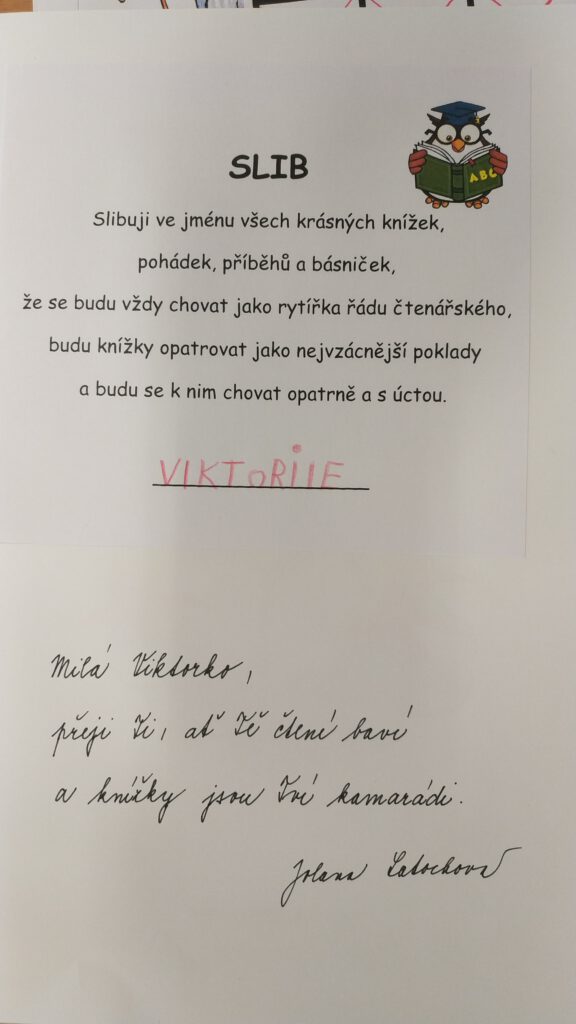 ABC
SLIB
Slibuji ve jménu všech krásných knížek,
pohádek, příběhů a básniček,
že se budu vždy chovat jako rytířka řádu čtenářského,
budu knížky opatrovat jako nejvzácnější poklady
a budu se k nim chovat opatrně a s úctou.
VIKTORiIE
Milá Viktorko,
přeji Ti, ať Tě čtení baví
a knížky jsou Tví kamarádi.
Jolana Latochová